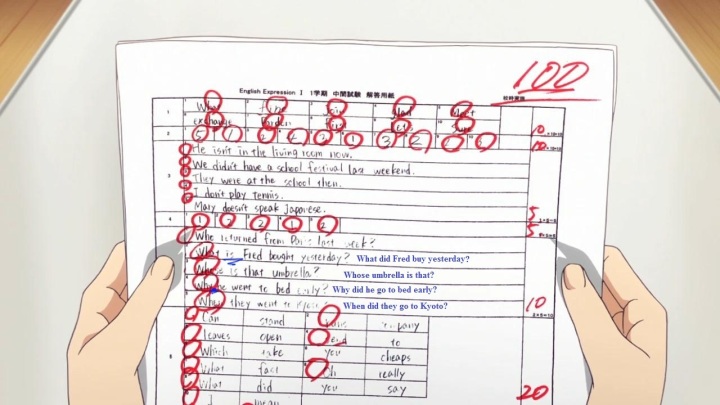 100
English Expression Ⅰ 1学期 中間試験 解答用紙
1 What
exchange
2 5 1 2 4 3 1 3 2
10
10
3 He isn't in the living room now.
We didn't have a school festival last weekend.
They were at the school then.
I don't play tennis.
Mary doesn't speak japanese.
5
4 1 2 2 1 2
5
Who returned from Paris last week?
What is Fred bought yesterday? What did Fred buy yesterday?
Whose is that umbrella? Whose umbrella is that?
Why he went to bed early? Why did he go to bed early?
When they went to Kyoto? When did they go to Kyoto?
10
Can stand
leaves open to
Which take you cheaps
What fact really
What did you say
I mean
20